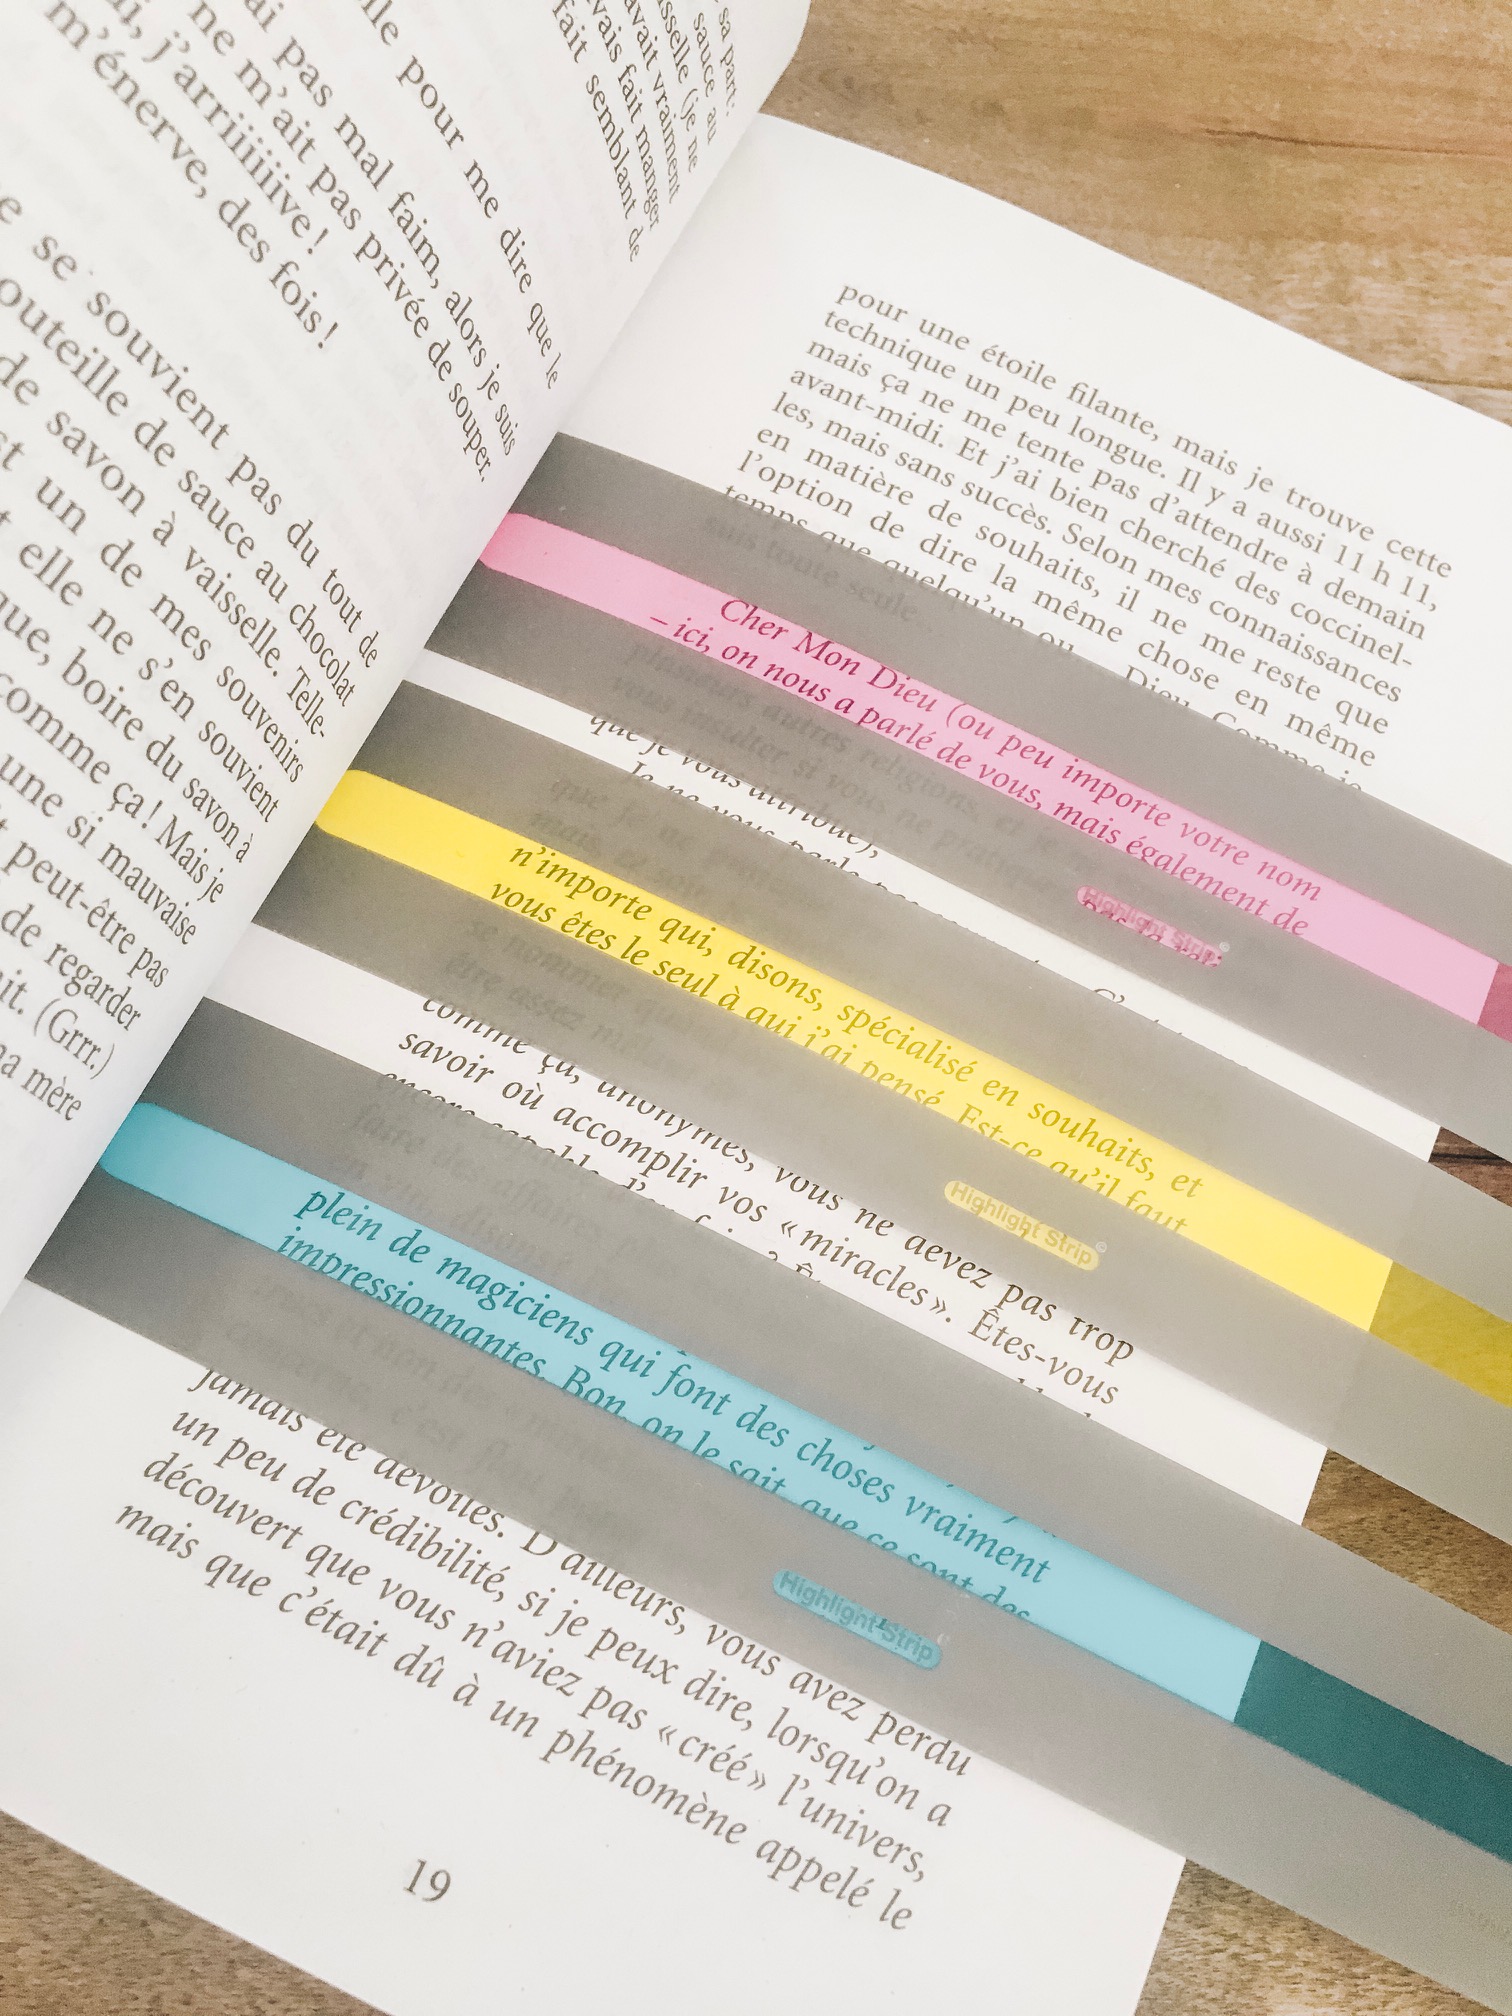 sa part:
sauce au
sselle (je ne
avait vraiment
vais fait manger
fait semblant de
ile pour me dire que le
ai pas mal faim, alors je suis
ne m'ait pas privée de souper.
i, j'arriiiiiive!
m'énerve, des fois!
e se souvient pas du tout de
outeille de sauce au chocolat
de savon à vaisselle. Telle-
st un de mes souvenirs
t elle ne s'en souvient
que, boire du savon à
comme ça! Mais je
une si mauvaise
t peut-être pas
de regarder
it. (Grrr.)
na mère
pour une étoile filante, mais je trouve cette
technique un peu longue. Il y a aussi 11 h 11,
mais ça ne me tente pas d'attendre à demain
avant-midi. Et j'ai bien cherché des coccinel-
les, mais sans succès. Selon mes connaissances
en matière de souhaits, il ne me reste que
l'option de dire la même chose en même
temps que quelqu'un ou... Dieu. Comme je
suis toute seule...
Cher Mon Dieu (ou peu importe votre nom
– ici, on nous a parlé de vous, mais également de
plusieurs autres religions, et je
vous insulter si vous ne
Highlight Strip
que je vous attribue),
Je ne vous parle pas
n'importe qui, disons, spécialisé en souhaits, et
vous êtes le seul à qui j'ai pensé. Est-ce qu'il faut
Highlight Strip
comme ça, anonymes, vous ne devez pas trop
savoir où accomplir vos «miracles». Êtes-vous
encore capable d'en faire?
plein de magiciens qui font des choses vraiment
impressionnantes. Bon, on le sait que ce sont des
Highlight Strip
jamais été dévoilés. D'ailleurs, vous avez perdu
un peu de crédibilité, si je peux dire, lorsqu'on a
découvert que vous n'aviez pas «créé» l'univers,
mais que c'était dû à un phénomène appelé le
19